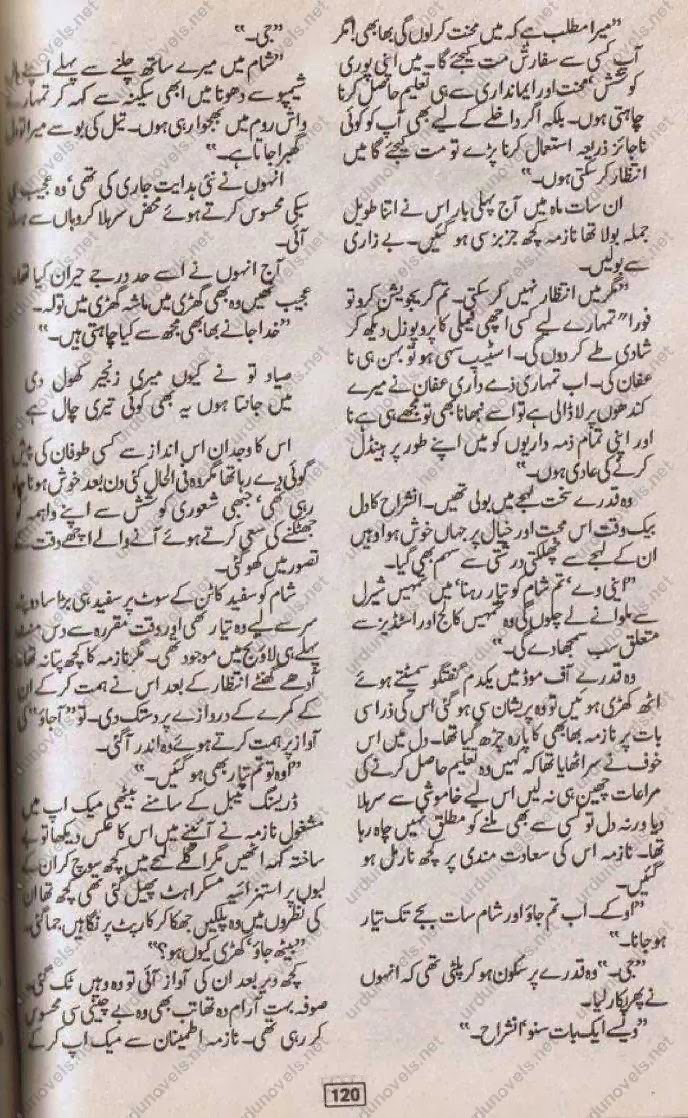 ”میرا مطلب ہے کہ میں محنت کر لوں گی بھابھی! مگر
آپ کسی سے سفارش مت کیجئے گا۔ میں اپنی پوری
کوشش‘ محنت اور ایمانداری سے ہی تعلیم حاصل کرنا
چاہتی ہوں۔ بلکہ اگر داخلے کے لیے بھی آپ کو کوئی
ناجائز ذریعہ استعمال کرنا پڑے تو مت کیجئے گا میں
انتظار کر سکتی ہوں۔“
ان سات ماہ میں آج پہلی بار اس نے اتنا طویل
جملہ بولا تھا نازمہ کچھ جزبز سی ہو گئیں۔ بے زاری
سے بولیں۔
”مگر میں انتظار نہیں کر سکتی۔ تم گریجویشن کرو تو
فوراً تمہارے لیے کسی اچھی فیملی کا پروپوزل دیکھ کر
شادی طے کر دوں گی۔ اسٹیپ سہی ہو تو بہن ہی نا
عفان کی۔ اب تمہاری ذمے داری عفان نے میرے
کندھوں پر لا ڈالی ہے تو اسے نبھانا بھی تو مجھے ہی ہے نا
اور اپنی تمام ذمہ داریوں کو میں اپنے طور پر ہینڈل
کرنے کی عادی ہوں۔“
وہ قدرے سخت لہجے میں بولی تھیں۔ انشراح کا دل
بیک وقت اس محبت اور خیال پر جہاں خوش ہوا وہیں
ان کے لہجے سے چھلکتی درشتی سے سہم بھی گیا۔
”اینی وے‘ تم شام کو تیار رہنا‘ میں تمہیں شیرل
سے ملوانے لے چلوں گی وہ تمہیں کالج اور اسٹڈیز سے
متعلق سب سمجھا دے گی۔“
وہ قدرے آف موڈ میں یکدم گفتگو سمیٹتے ہوئے
اٹھ کھڑی ہوئیں تو وہ پریشان سی ہو گئی اس کی ذرا سی
بات پر نازمہ بھابھی کا پارہ چڑھ گیا تھا۔ دل میں اس
خوف نے سر اٹھایا تھا کہ کہیں وہ تعلیم حاصل کرنے کی
مراعات چھین ہی نہ لیں اس لیے خاموشی سے سر ہلا
دیا ورنہ دل تو کسی سے بھی ملنے کو مطلق نہیں چاہ رہا
تھا۔ نازمہ اس کی سعادت مندی پر کچھ نارمل ہو
گئیں۔
”اوکے۔ اب تم جاؤ اور شام سات بجے تک تیار
ہو جانا۔“
”جی۔“ وہ قدرے پر سکون ہو کر پلٹی تھی کہ انہوں
نے پھر پکار لیا۔
”ویسے ایک بات سنو‘ انشراح۔“
”جی۔“
”شام میں میرے ساتھ چلنے سے پہلے اپنے بال
شیمپو سے دھونا میں ابھی سکینہ سے کہہ کر تمہارے
واش روم میں بھجوا رہی ہوں۔ تیل کی بو سے میرا تو دل
گھبرا جاتا ہے۔“
انہوں نے نئی ہدایت جاری کی تھی‘ وہ عجیب
سبکی محسوس کرتے ہوئے محض سر ہلا کر وہاں سے
آئی۔
آج انہوں نے اسے حد درجے حیران کیا تھا۔
عجیب تھیں وہ بھی گھڑی میں ماشہ گھڑی میں تولہ۔
”خدا جانے بھابھی مجھ سے کیا چاہتی ہیں۔“
صیاد تو نے کیوں میری زنجیر کھول دی
میں جانتا ہوں یہ بھی کوئی تیری چال ہے
اس کا وجدان اس انداز سے کسی طوفان کی پیش
گوئی دے رہا تھا مگر وہ فی الحال کئی دن بعد خوش ہونا چاہ
رہی تھی‘ جبھی شعوری کوشش سے اپنے واہمہ کو
جھٹکنے کی سعی کرتے ہوئے آنے والے اچھے وقت کے
تصور میں کھو گئی۔
شام کو سفید کاٹن کے سوٹ پر سفید ہی بڑا سا دوپٹہ
سر سے لیے وہ تیار تھی اور وقت مقررہ سے دس منٹ
پہلے ہی لاؤنج میں موجود تھی۔ مگر نازمہ کا کچھ پتا نہ تھا۔
آدھے گھنٹے انتظار کے بعد اس نے ہمت کر کے ان
کے کمرے کے دروازے پر دستک دی۔ تو ”آجاؤ“ کی
آواز پر ہمت کرتے ہوئے وہ اندر آ گئی۔
”اوہ تو تم تیار بھی ہو گئیں۔“
ڈریسنگ ٹیبل کے سامنے بیٹھی میک اپ میں
مشغول نازمہ نے آئینے میں اس کا عکس دیکھا تو بے
ساختہ کہہ اٹھیں مگر اگلے لمحے میں کچھ سوچ کر ان کے
لبوں پر استہزائیہ مسکراہٹ پھیل گئی تھی کچھ تھا ان
کی نظروں میں وہ پلکیں جھکا کر کارپٹ پر نگاہیں جما گئی۔
”بیٹھ جاؤ‘ کھڑی کیوں ہو؟“
کچھ دیر بعد ان کی آواز آئی تو وہ وہیں ٹک گئی۔
صوفہ بہت آرام دہ تھا تب بھی وہ بے چینی سی محسوس
کر رہی تھی۔ نازمہ اطمینان سے میک اپ کر کے
120
urdunovels.net